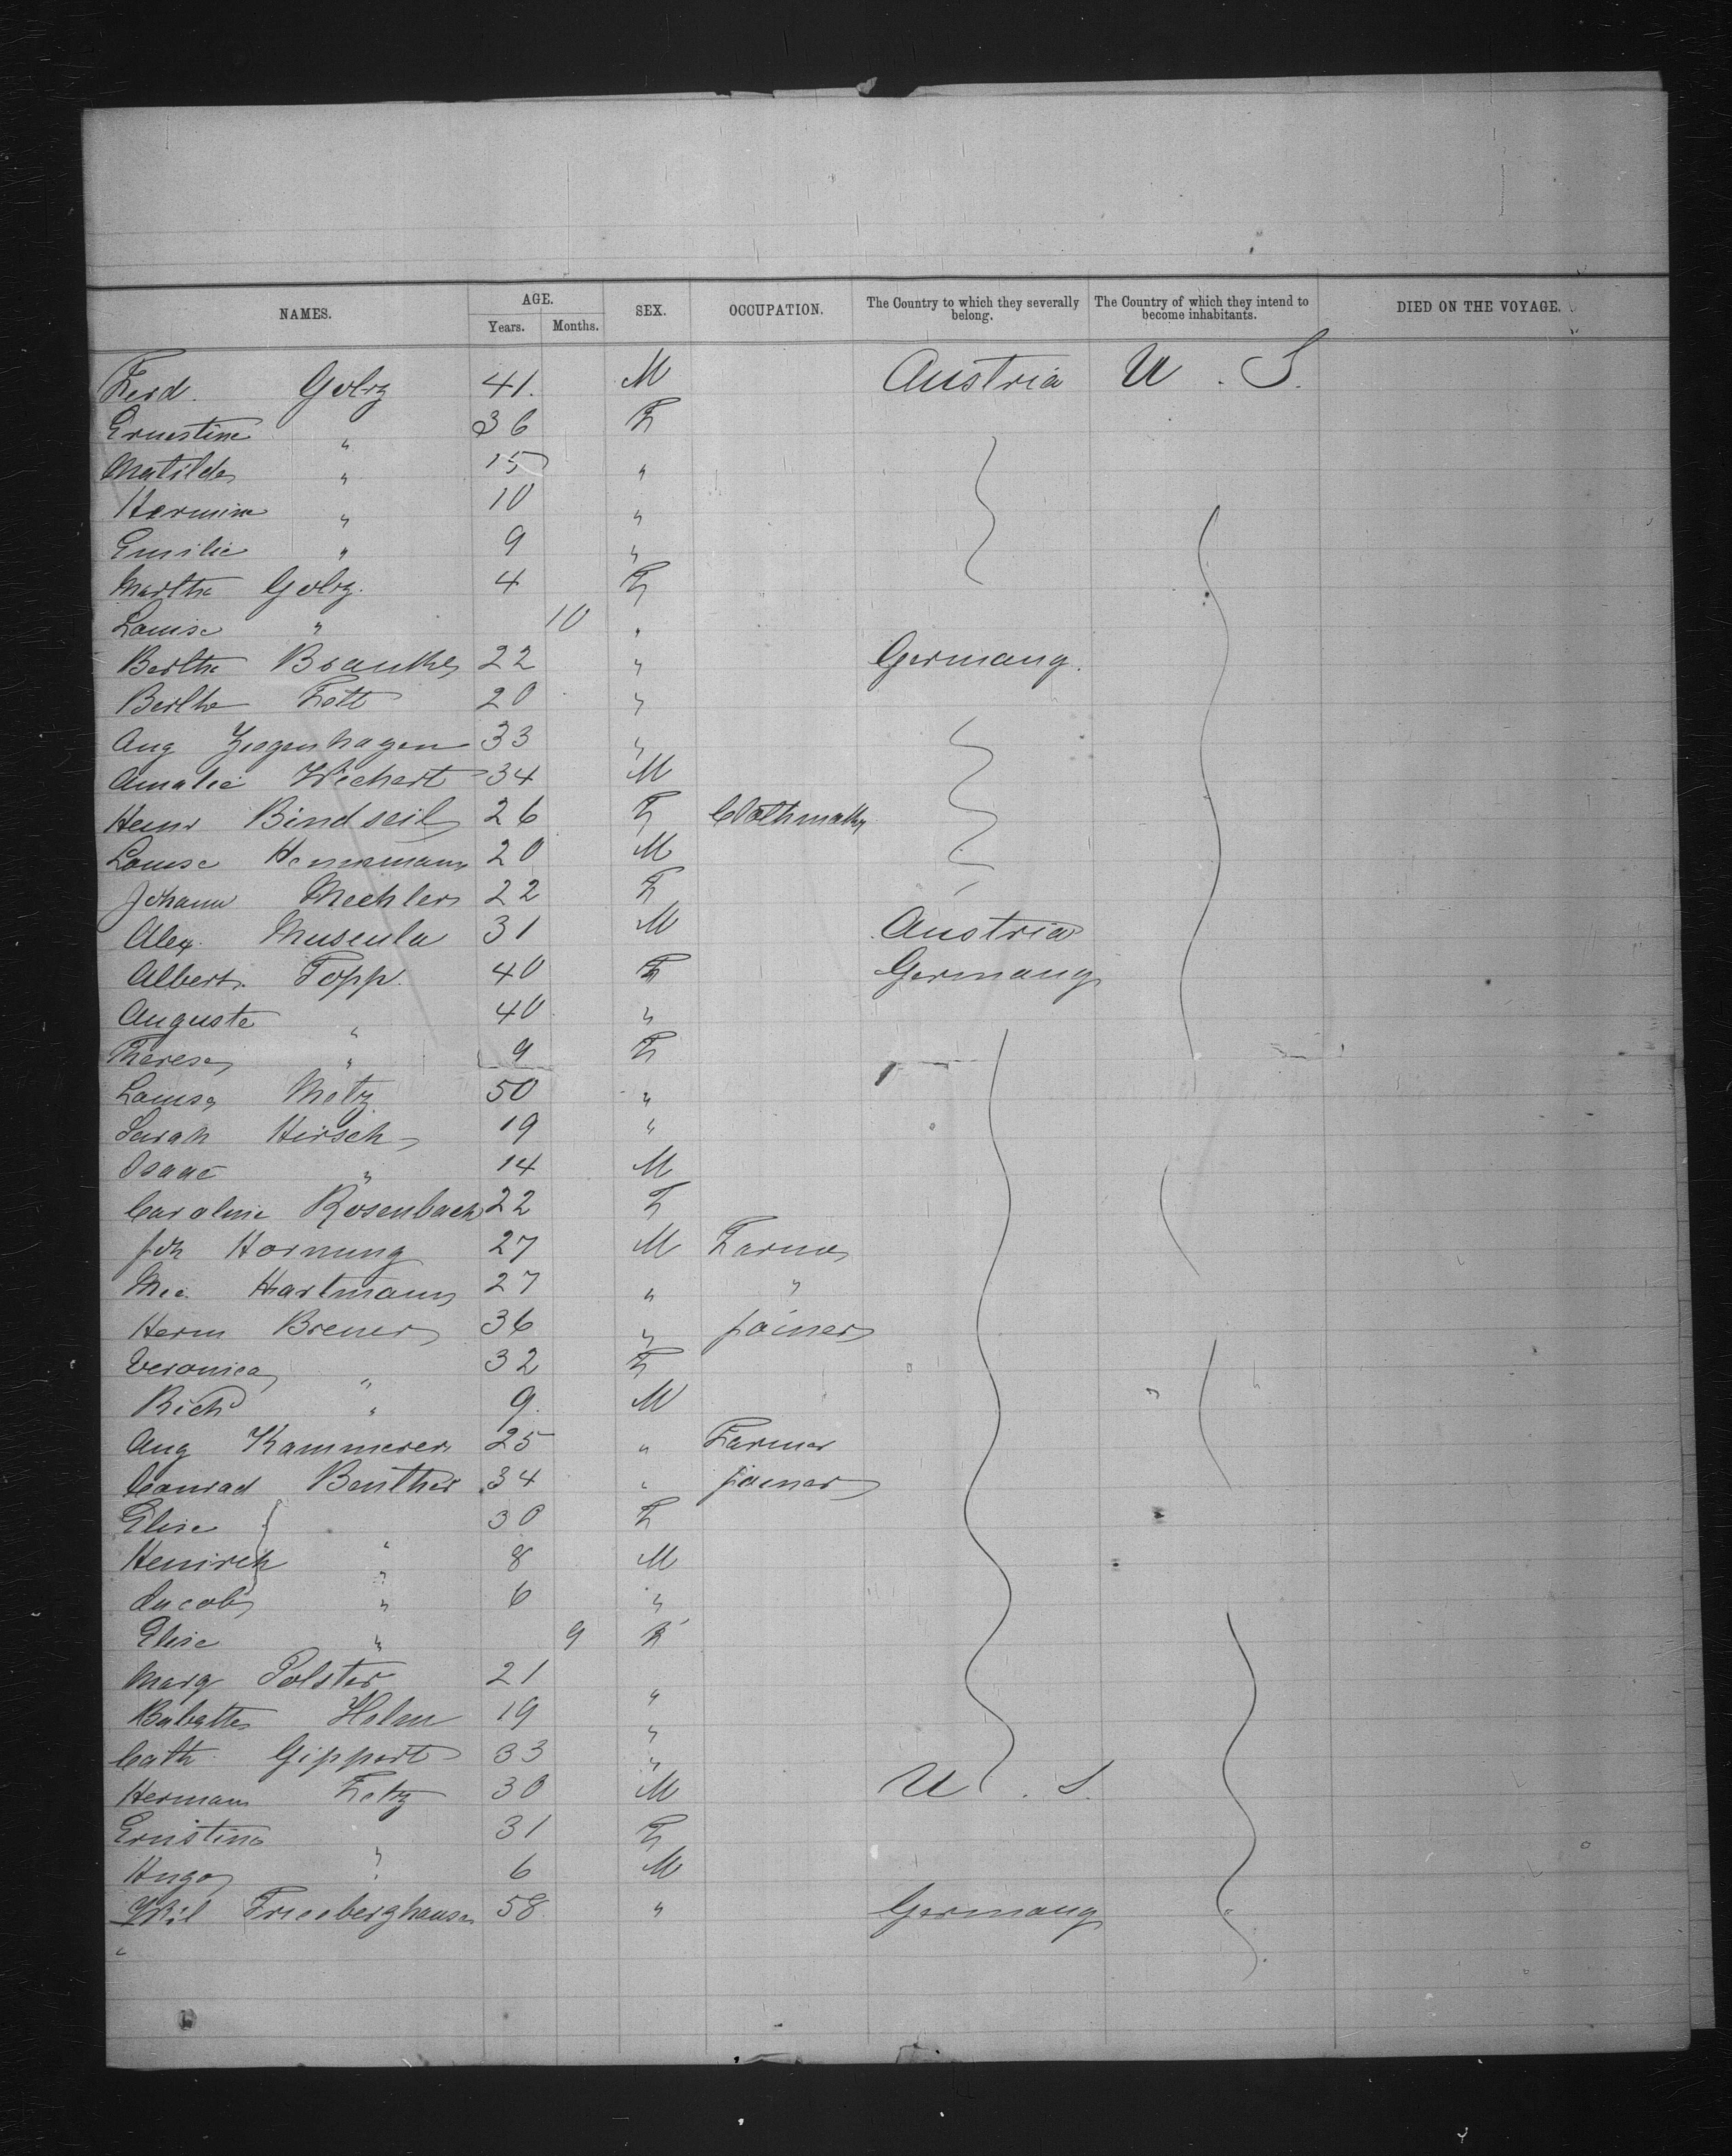 NAMES. AGE. Years. Months. SEX. OCCUPATION. The Country to which they severally belong. The Country of which they intend to become inhabitants. DIED ON THE VOYAGE.
Ferd. Golrz 41. M Austria U. S.
Ernestine " 36 F
Matilde " 15 "
Hermine " 10 "
Emilie " 9 "
Martha Golrz. 4 F
Louise " 10 "
Bertha Brauthe 22 " Germany.
Berthe Fott 20 "
Aug Ziegenhagen 33 "
Amalie Wichert 34 M
Heinr Bindseil 26 F
Louise Hennemann 20 M
Johann Mechler 22 F
Alex. Muscula 31 M Austria
Albert. Topp. 40 F Germany
Auguste " 40 "
Therese " 9 F
Louise Motz 50 "
Sarah Hirsch 19 "
Isaac " 14 M
Caroline Rosenbach 22 F
Joh Hornung 27 M Farmer
Hartmann 27 " "
Herm Brener 36 " joiner
Veronica " 32 F
Richd " 9. M
Aug Kammerer 25 " Farmer
Conrad Benther 34 " joiner
Elise " 30 F
Heinrich " 8 M
Jacob " 6 "
Elise " 9 F
Marg Polster 21 "
Babette Holm 19 "
Cath Gippert 33 "
Hermann Fetz 30 M U. S.
Ernstine " 31 F
Hugo " 6 M
Wil Frieeberghausen 58 " Germany
"